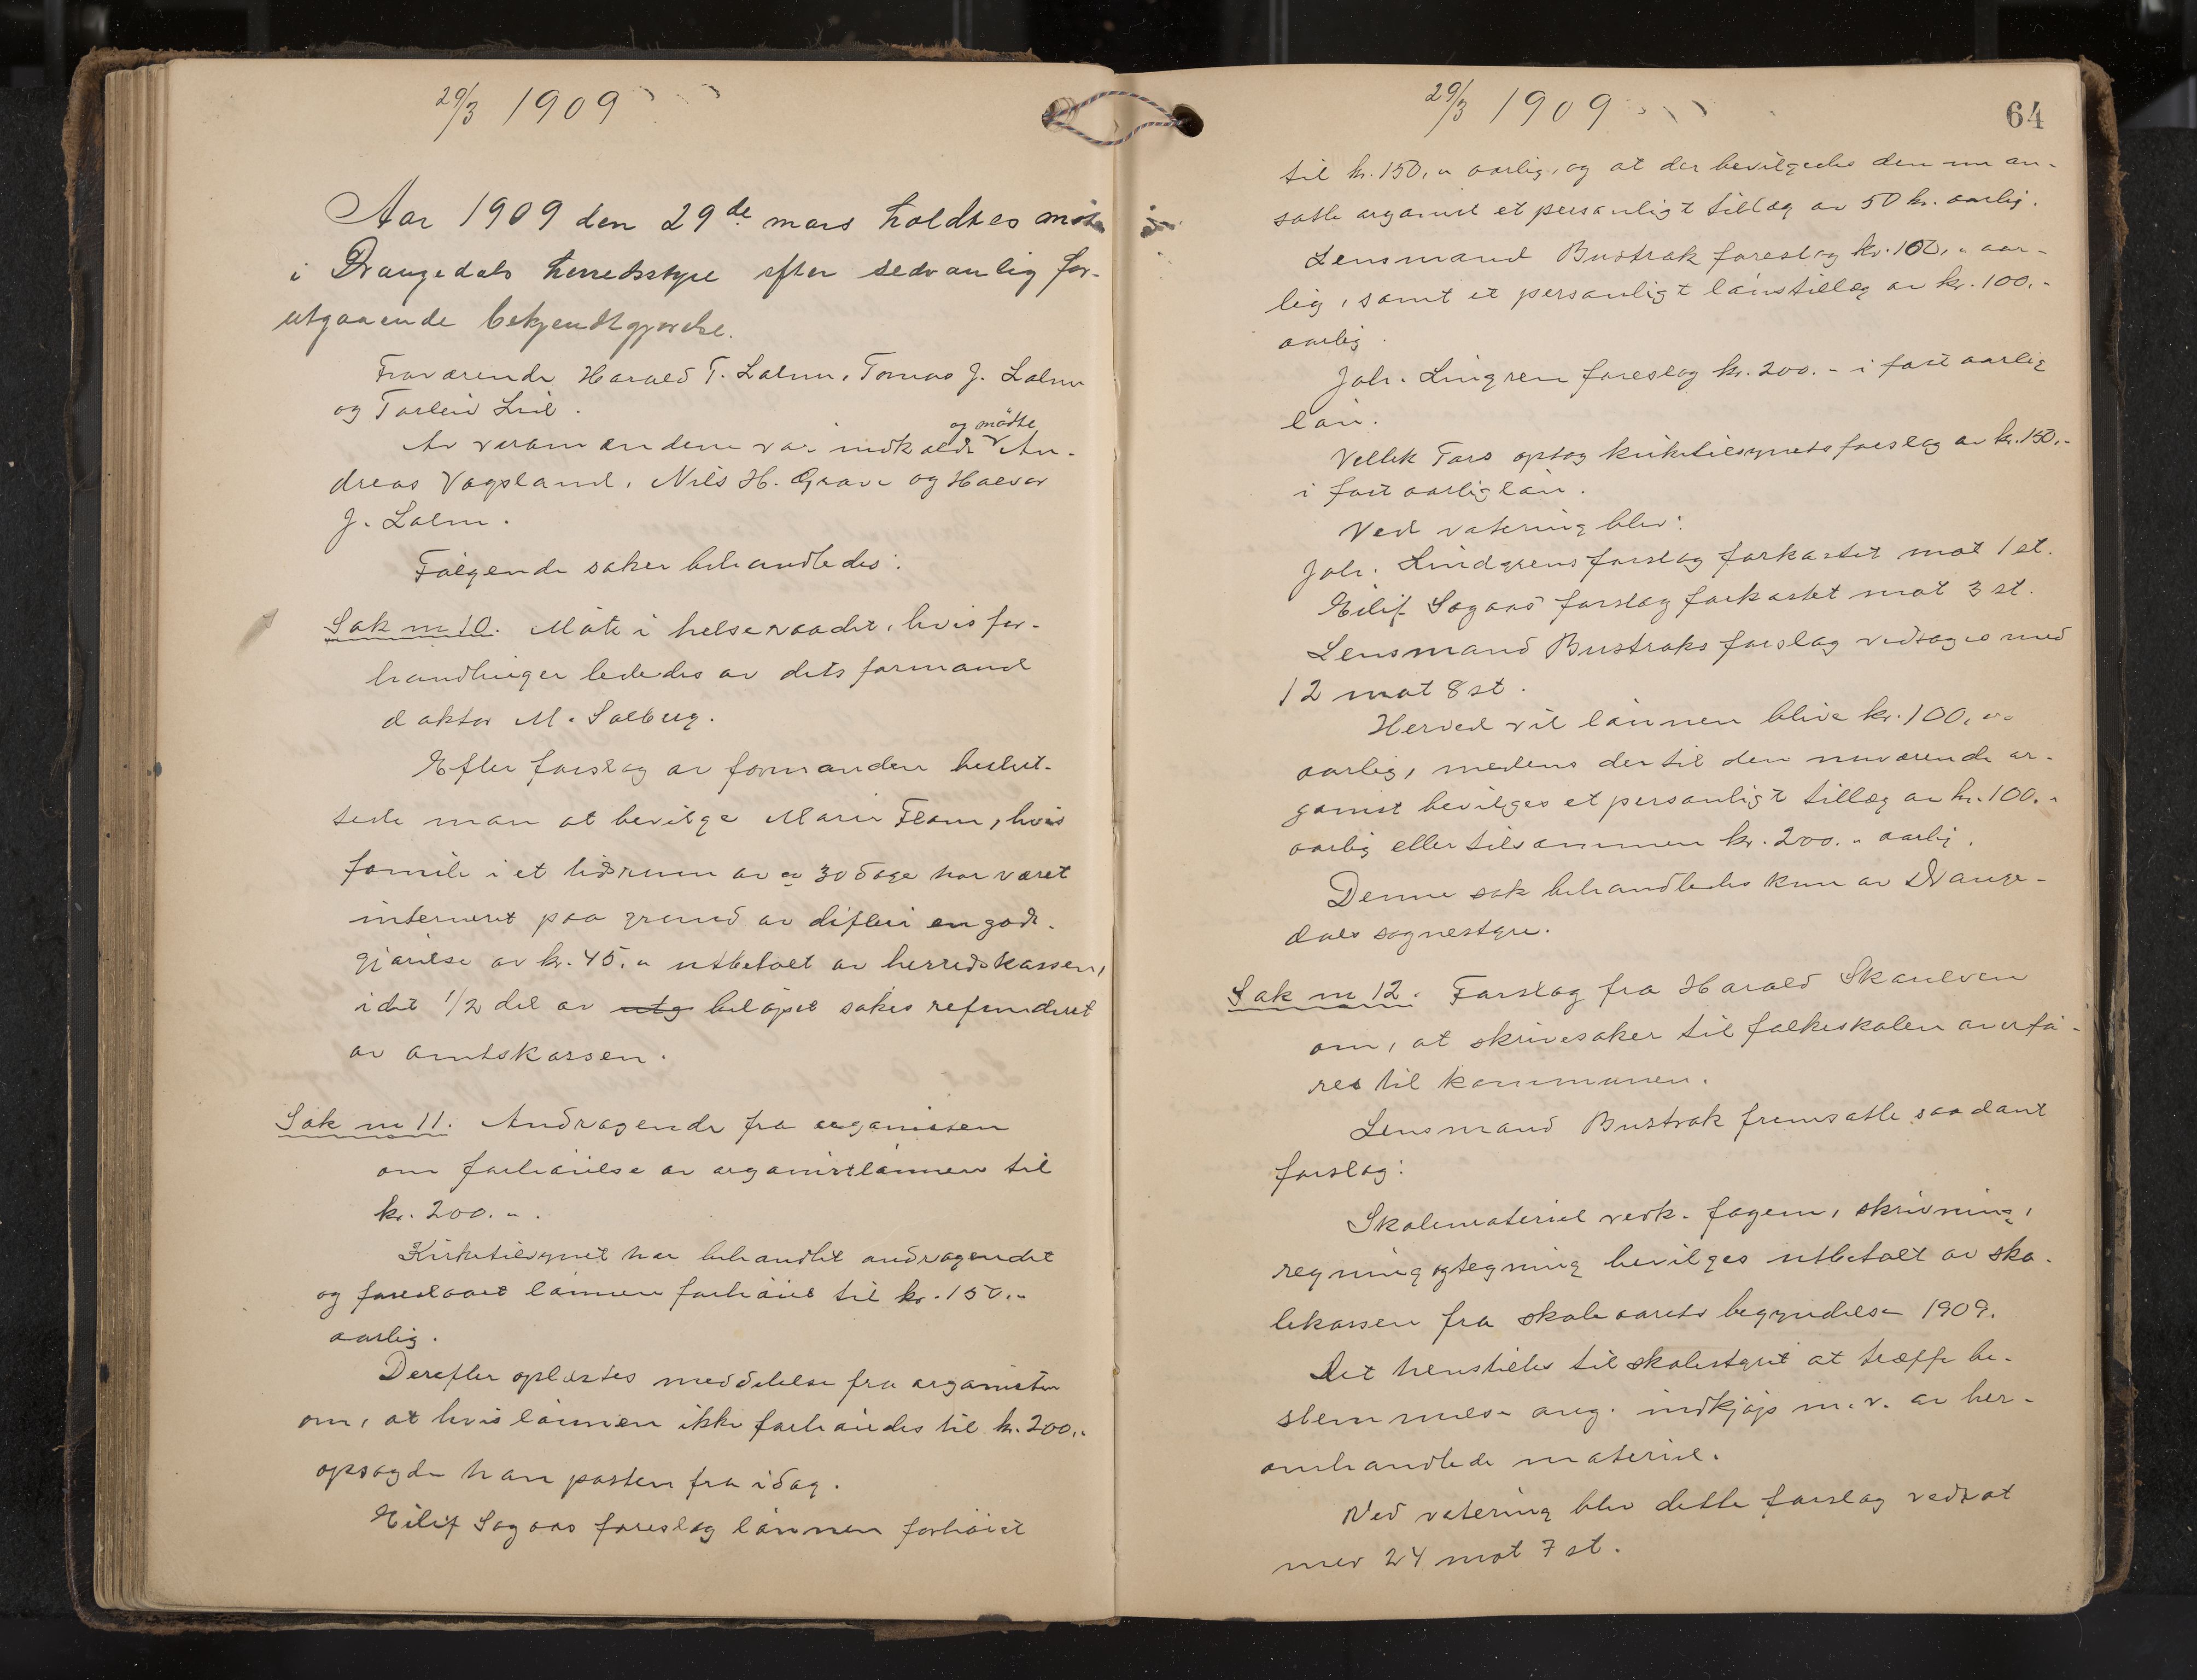 29/3 1909
Aar 1909 den 29de mars holdtes møte
i Drangedals herredsstyre efter sedvanlig for-
utgaaende bekjendtgjørelse.
Fraværende Harald T. Lalm, Tomas J. Lalm
og Torleiv Lill.
Av varamændene var indkaldt og mødte An-
dreas Vogsland, Nils H. Grave og Halvor
J. Lalm.
Følgende saker behandledes:
Sak nr 10. Møte i helseraadet, hvis for-
handlinger lededes av dets formand
doktor M. Solberg.
Efter forslag av formanden beslut-
tede man at bevilge Marie Floen, hvis
famile i et tidsrum av ca 30 dage har været
interneret paa grund av difteri en godt-
gjørelse av kr. 45,- utbetalt av herredskassen,
idet 1/2 del av utg beløpet søkes refunderet
av amtskassen.
Sak nr 11. Andragende fra organisten
om forhøielse av organistlønnen til
kr. 200.-.
Kirketilsynet har behandlet andragendet
og foreslaaet lønnen forhøiet til kr. 150,-
aarlig.
Derefter oplæstes meddelelse fra organisten
om, at hvis lønnen ikke forhøiedes til kr. 200,-
opsagde han posten fra idag.
Eilif Sogaas foreslog lønnen forhøiet
29/3 1909
64
til kr. 150,- aarlig, og at der bevilgedes den nu an-
satte organist et personligt tillæg av 50 kr. aarlig.
Lensmand Bustrak foreslog kr. 100,- aar-
lig, samt et personligt lønstillæg av kr. 100.-
aarlig.
Joh. Lingren foreslog kr. 200.- i fast aarlig
løn.
Vellek Tors optog kirketilsynets forslag av kr. 150.-
i fast aarlig løn.
Ved votering blev:
Joh. Lindgrens forslag forkastet mot 1 st.
Eilif Sogaas forslag forkastet mot 3 st.
Lensmand Bustraks forslag vedtoges med
12 mot 8 st.
Herved vil lønnen blive kr. 100,-
aarlig, medens der til den nuværende or-
ganist bevilges et personligt tillæg av kr. 100.-
aarlig eller tilsammen kr. 200.- aarlig.
Denne sak behandledes kun av Drange-
dals sognestyre.
Sak nr 12. Forslag fra Harald Skaulven
om, at skrivesaker til folkeskolen overfø-
res til kommunen.
Lensmand Bustrak fremsatte saadant
forslag:
Skolemateriel vedk. fagene, skrivning,
regning og tegning bevilges utbetalt av sko-
lekassen fra skoleaarets begyndelse 1909.
Det henstilles til skolestyret at træffe be-
stemmelse ang. indkjøp m.v. av her-
omhandlede materiel.
Ved votering blev dette forslag vedtat
med 24 mot 7 st.